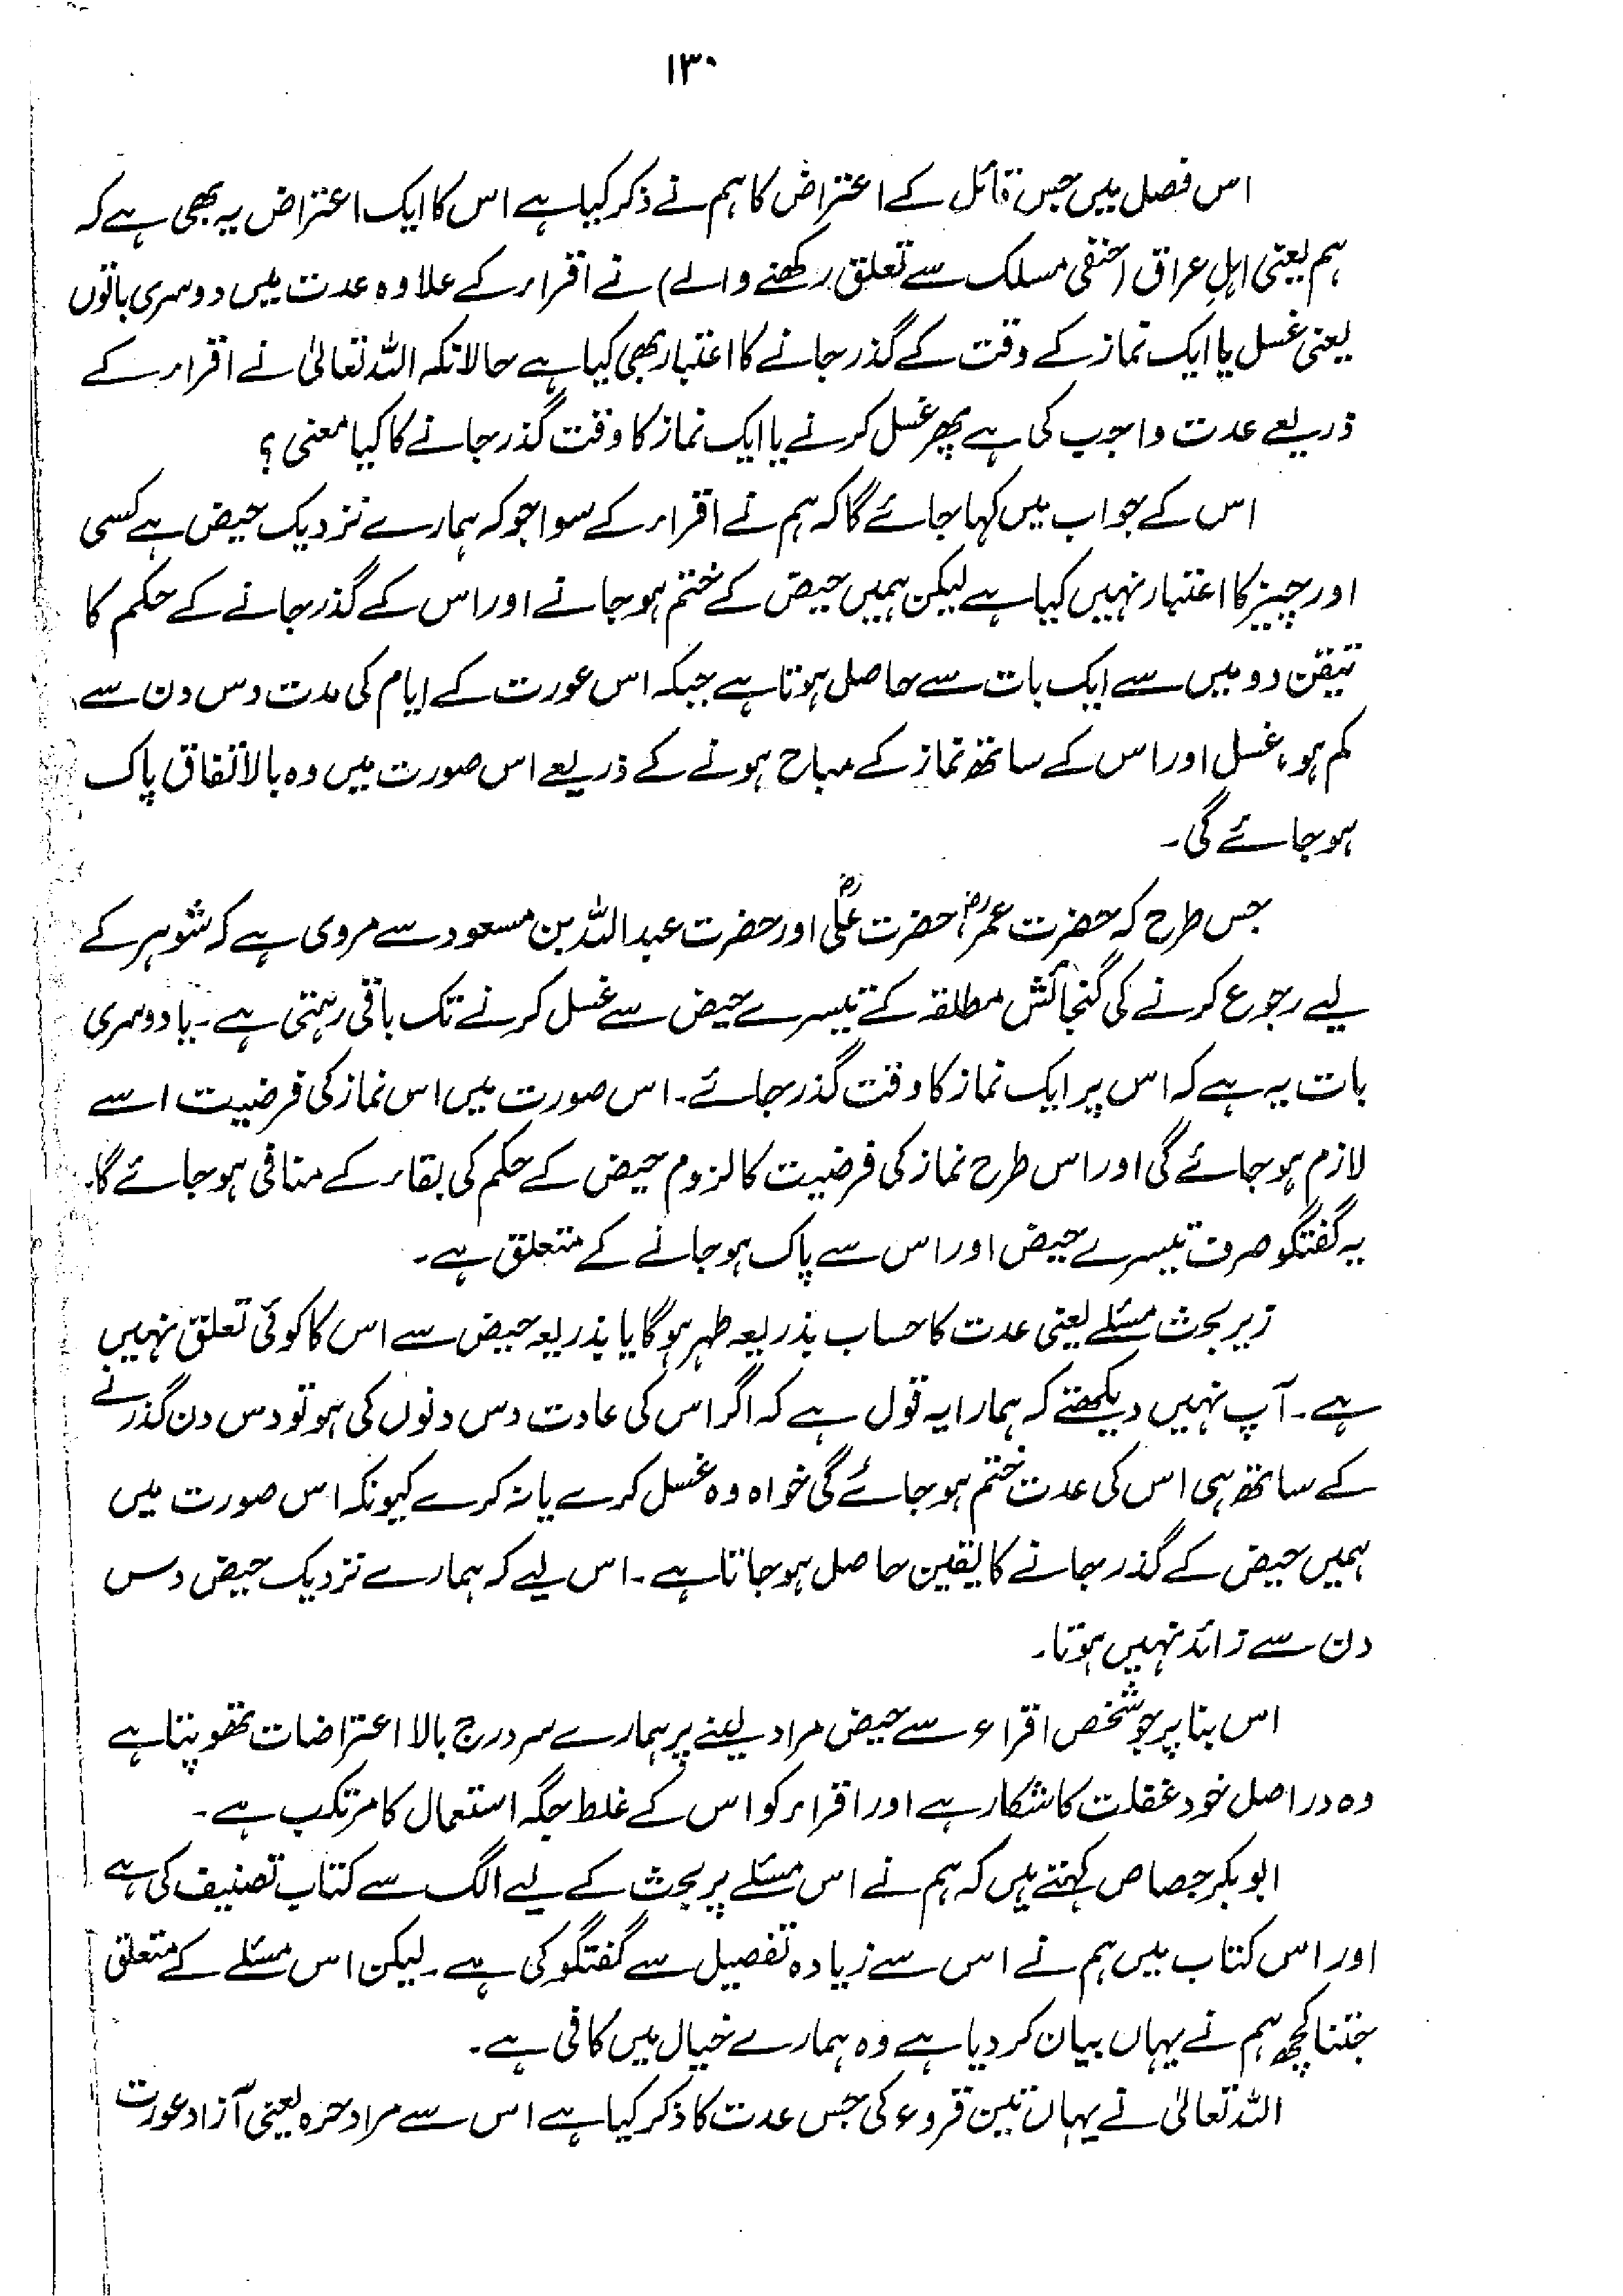 ۱۳۰
اس فصل میں جس قائل کے اعتراض کا ہم نے ذکر کیا ہے اس کا ایک اعتراض یہ بھی ہے کہ
ہم یعنی اہلِ عراق (حنفی مسلک سے تعلق رکھنے والے) نے اقراء کے علاوہ عدت میں دوسری باتوں
یعنی غسل یا ایک نماز کے وقت کے گذر جانے کا اعتبار بھی کیا ہے حالانکہ اللہ تعالیٰ نے اقراء کے
ذریعے عدت واجب کی ہے پھر غسل کرنے یا ایک نماز کا وقت گذر جانے کا کیا معنی؟
اس کے جواب میں کہا جائے گا کہ ہم نے اقراء کے سوا جو کہ ہمارے نزدیک حیض ہے کسی
اور چیز کا اعتبار نہیں کیا ہے لیکن ہمیں حیض کے ختم ہو جانے اور اس کے گذر جانے کے حکم کا
تیقن دو میں سے ایک بات سے حاصل ہوتا ہے جبکہ اس عورت کے ایام کی مدت دس دن سے
کم ہو، غسل اور اس کے ساتھ نماز کے مباح ہونے کے ذریعے اس صورت میں وہ بالاتفاق پاک
ہو جائے گی۔
جس طرح کہ حضرت عمرؓ، حضرت علیؓ اور حضرت عبداللہ بن مسعود سے مروی ہے کہ شوہر کے
لیے رجوع کرنے کی گنجائش مطلقہ کے تیسرے حیض سے غسل کرنے تک باقی رہتی ہے۔ یا دوسری
بات یہ ہے کہ اس پر ایک نماز کا وقت گذر جائے۔ اس صورت میں اس نماز کی فرضیت اسے
لازم ہو جائے گی اور اس طرح نماز کی فرضیت کا لزوم حیض کے حکم کی بقاء کے منافی ہو جائے گا۔
یہ گفتگو صرف تیسرے حیض اور اس سے پاک ہو جانے کے متعلق ہے۔
زیر بحث مسئلے یعنی عدت کا حساب بذریعہ طہر ہوگا یا بذریعہ حیض سے اس کا کوئی تعلق نہیں
ہے۔ آپ نہیں دیکھتے کہ ہمارا یہ قول ہے کہ اگر اس کی عادت دس دنوں کی ہو تو دس دن گذرنے
کے ساتھ ہی اس کی عدت ختم ہو جائے گی خواہ وہ غسل کرے یا نہ کرے کیونکہ اس صورت میں
ہمیں حیض کے گذر جانے کا یقین حاصل ہو جاتا ہے۔ اس لیے کہ ہمارے نزدیک حیض دس
دن سے زائد نہیں ہوتا۔
اس بنا پر جو شخص اقراء سے حیض مراد لینے پر ہمارے سر درج بالا اعتراضات تھوپتا ہے
وہ دراصل خود غفلت کا شکار ہے اور اقراء کو اس کے غلط جگہ استعمال کا مرتکب ہے۔
ابوبکر جصاص کہتے ہیں کہ ہم نے اس مسئلے پر بحث کے لیے الگ سے کتاب تصنیف کی ہے
اور اس کتاب میں ہم نے اس سے زیادہ تفصیل سے گفتگو کی ہے۔ لیکن اس مسئلے کے متعلق
جتنا کچھ ہم نے یہاں بیان کر دیا ہے وہ ہمارے خیال میں کافی ہے۔
اللہ تعالیٰ نے یہاں تین قروء کی جس عدت کا ذکر کیا ہے اس سے مراد حرہ یعنی آزاد عورت